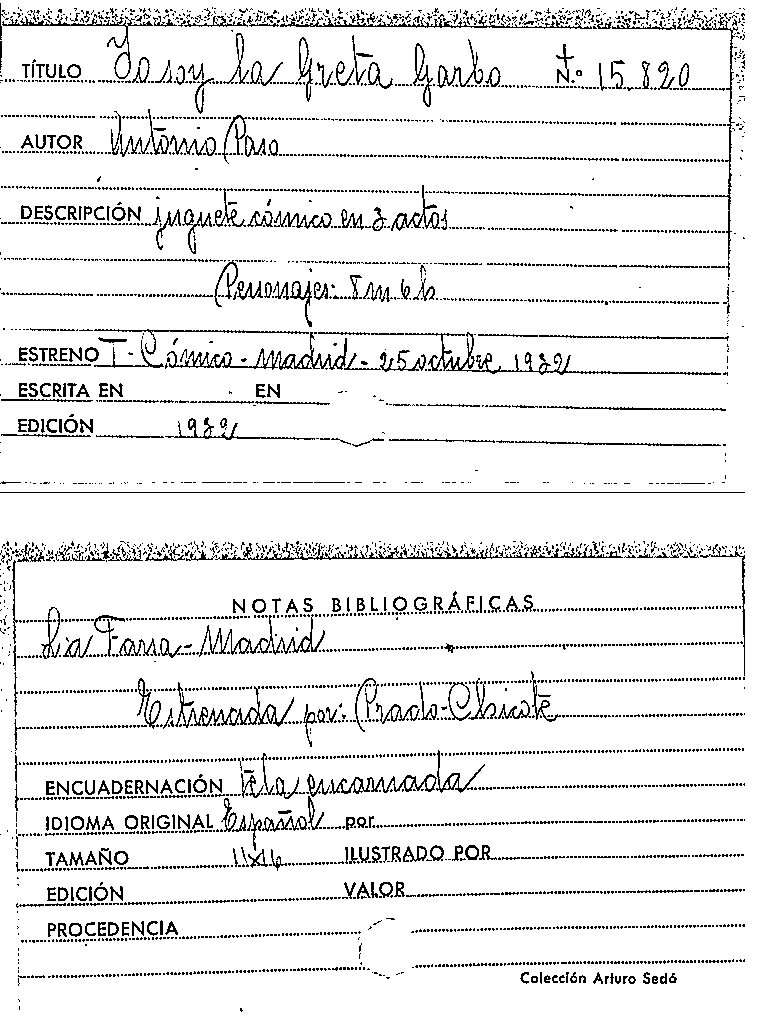 TÍTULO Yo soy la Greta Garbo N.º 15.820
AUTOR Antonio Paso
DESCRIPCIÓN juguete cómico en 3 actos
Personajes: 8 m 6 h
ESTRENO T. Cómico - Madrid - 25 octubre 1932
ESCRITA EN EN
EDICIÓN 1932
NOTAS BIBLIOGRÁFICAS
La Farsa - Madrid
Estrenada por: Prado-Chicote
ENCUADERNACIÓN tela encarnada
IDIOMA ORIGINAL Español por
TAMAÑO 11x16 ILUSTRADO POR
EDICIÓN VALOR
PROCEDENCIA
Colección Arturo Sedó